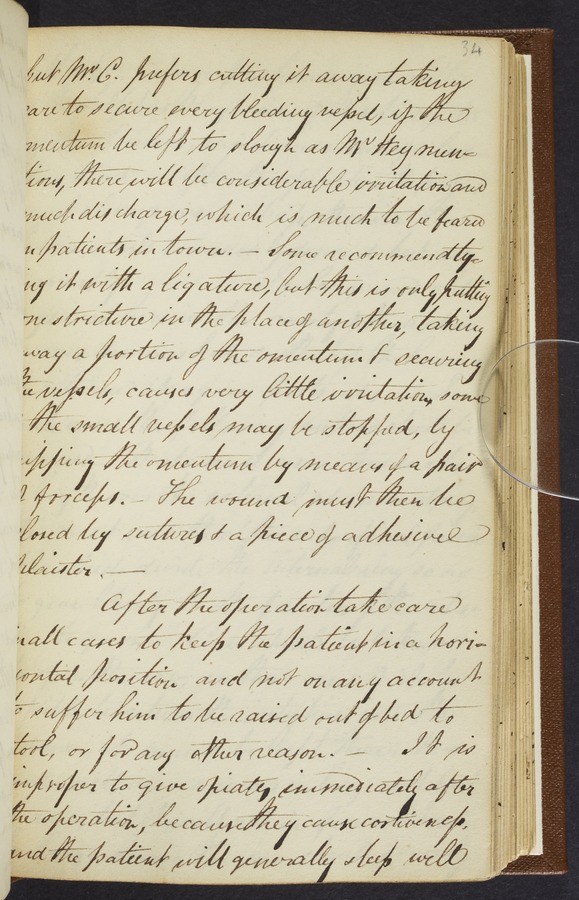 34
but Mr. C. prefers cutting it away taking
care to secure every bleeding vessel, if the
omentum be left to slough as Mr Hey men=
tions, there will be considerable irritation and
much discharge, which is much to be feard
in patients in town. — Some recommend ty=
ing it with a ligature, but this is only putting
one stricture in the place of another, taking
away a portion of the omentum & securing
the vessels, causes very little irritation, some
the small vessels may be stopped, by
nipping the omentum by means of a pair
of forceps. — The wound must then be
closed by sutures & a piece of adhesive
plaister. —
After the operation take care
in all cases to keep the patient in a hori=
zontal position and not on any account
to suffer him to be raised out of bed to
stool, or for any other reason. — It is
improper to give opiates, immediately after
the operation, because they cause costiveness,
and the patient will generally sleep well